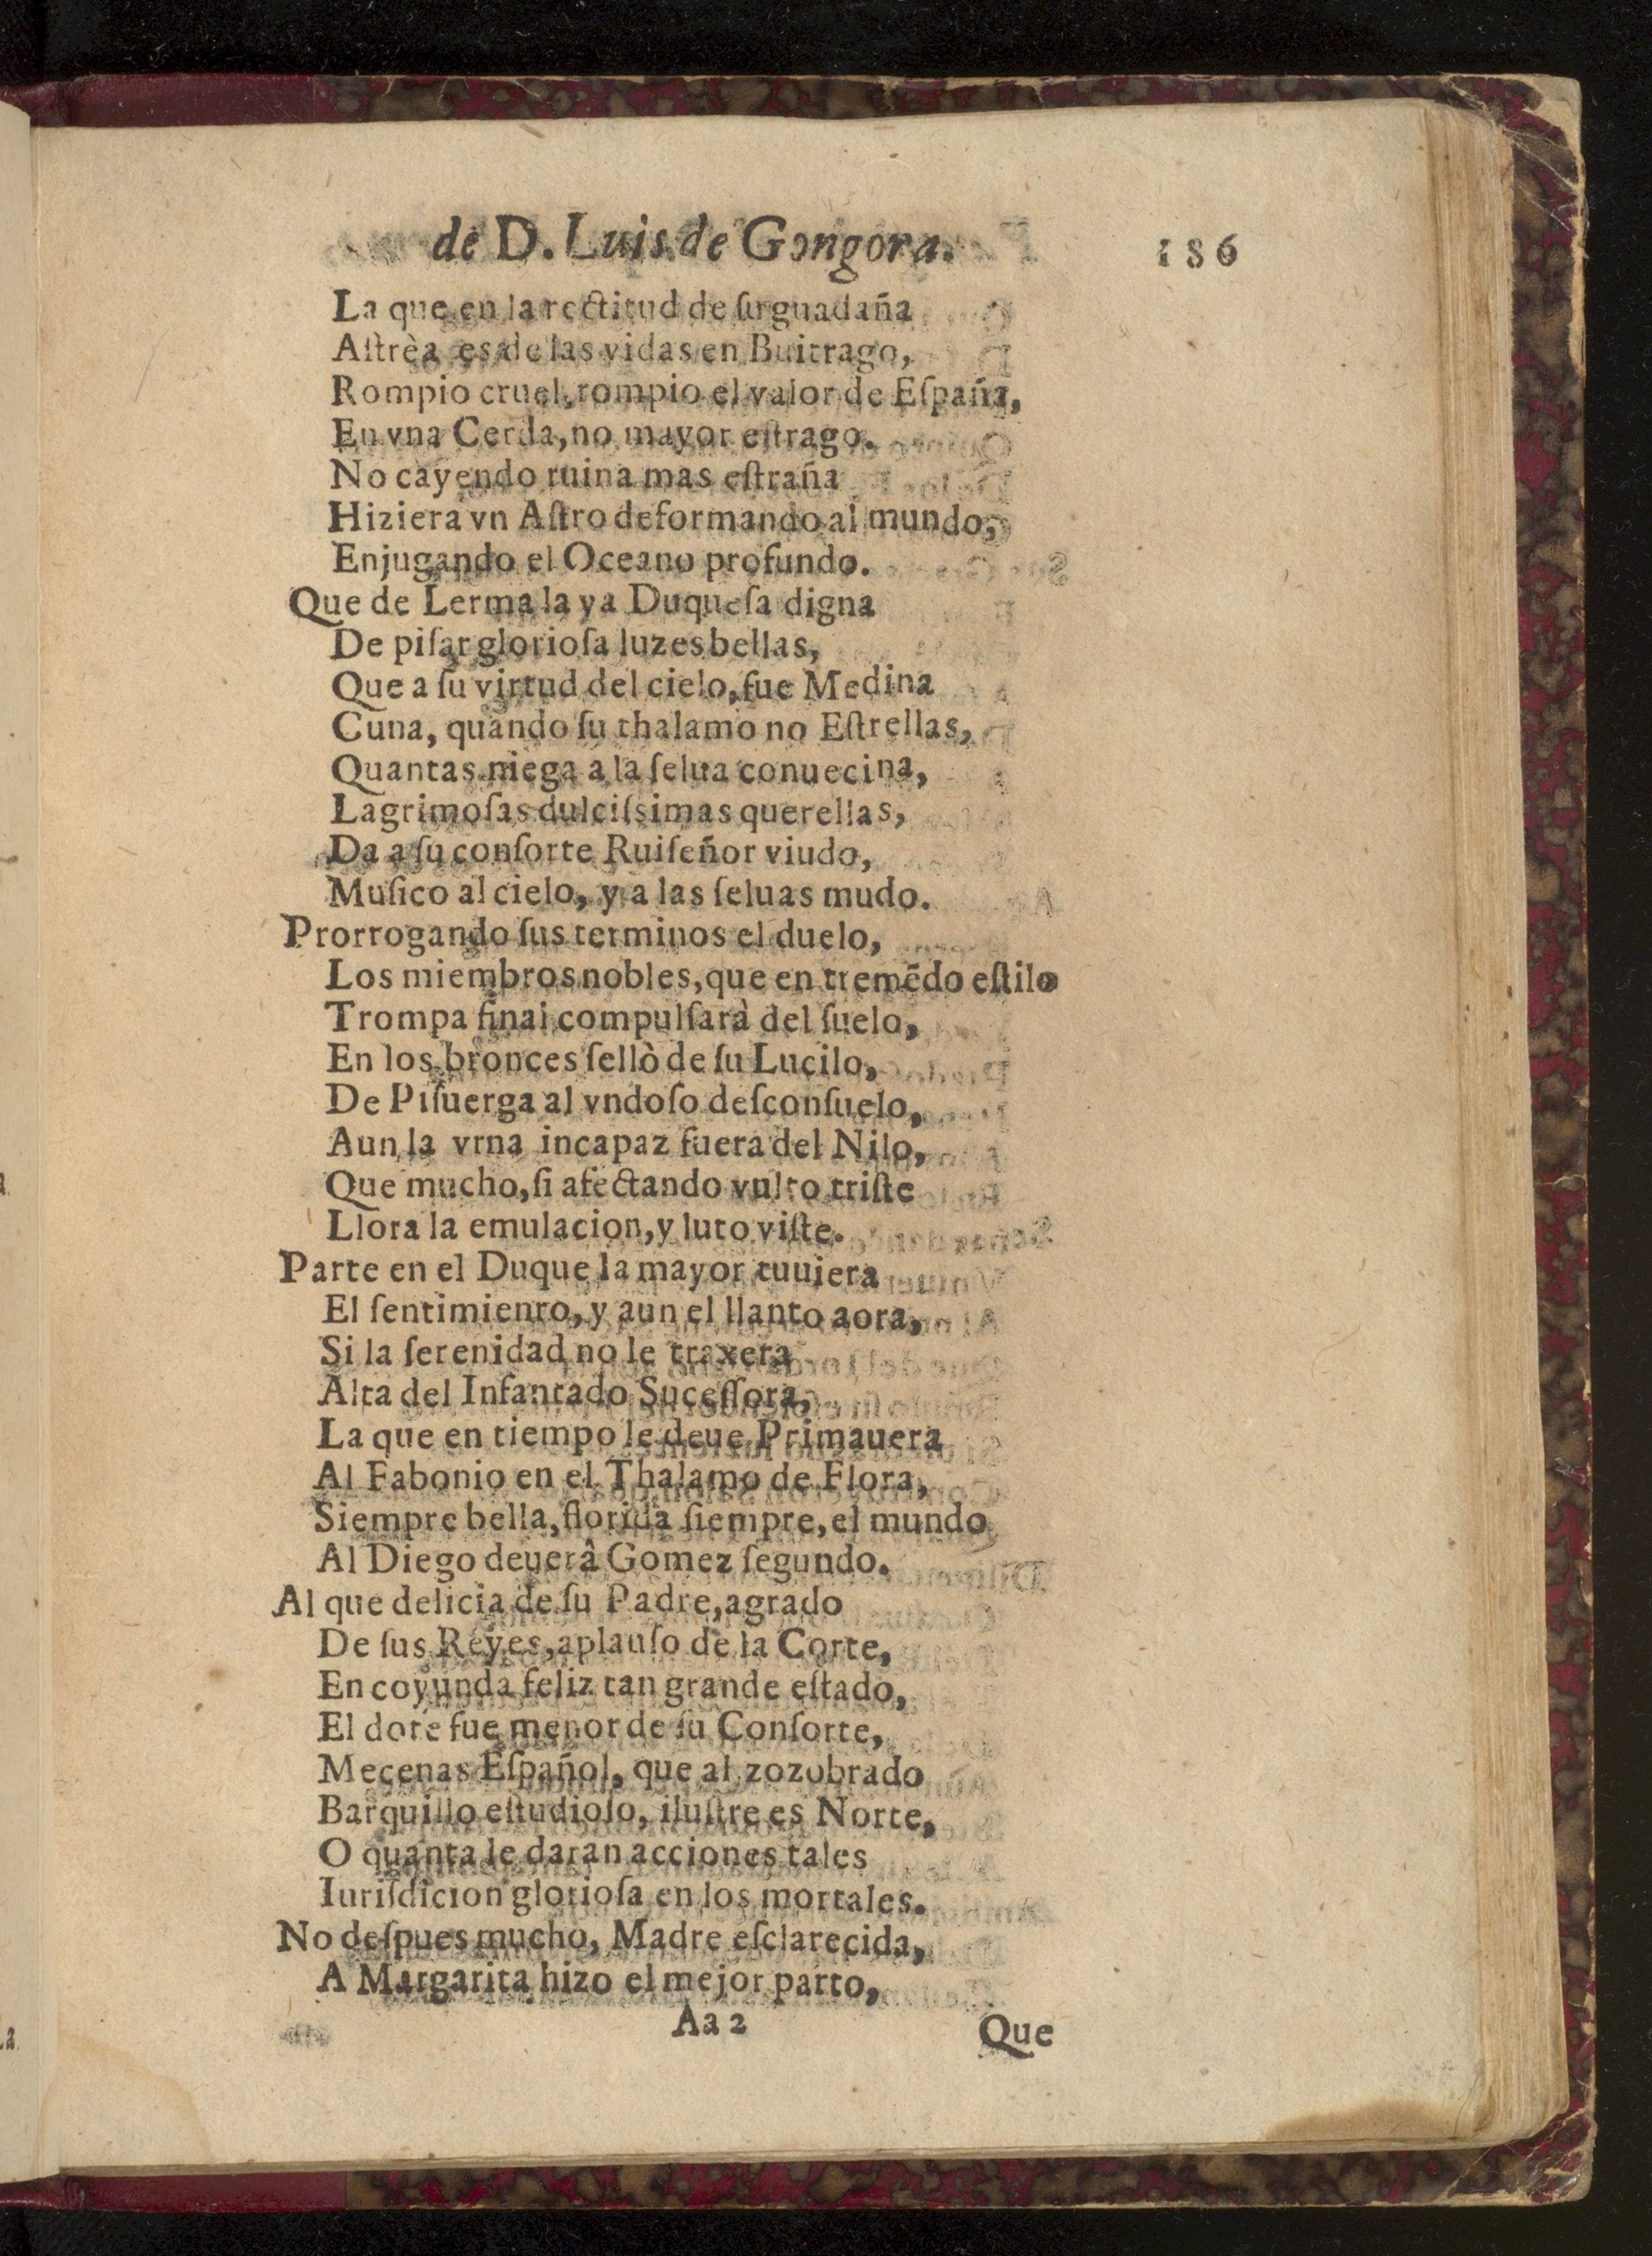 de D. Luis de Gongora. 186
La que en la rectitud de ſu guadaña
Aſtrèa es de las vidas en Buitrago,
Rompio cruel, rompio el valor de Eſpaña,
En vna Cerda, no mayor eſtrago.
No cayendo ruina mas eſtraña
Hiziera vn Aſtro deformando al mundo,
Enjugando el Oceano profundo.
Que de Lerma la ya Duqueſa digna
De piſar glorioſa luzes bellas,
Que a ſu virtud del cielo, fue Medina
Cuna, quando ſu thalamo no Eſtrellas,
Quantas niega a la ſelua conuecina,
Lagrimoſas dulciſsimas querellas,
Da a ſu conſorte Ruiſeñor viudo,
Muſico al cielo, y a las ſeluas mudo.
Prorrogando ſus terminos el duelo,
Los miembros nobles, que en tremēdo eſtilo
Trompa final compulſarà del ſuelo,
En los bronces ſellò de ſu Lucilo,
De Piſuerga al vndoſo deſconſuelo,
Aun la vrna incapaz fuera del Nilo,
Que mucho, ſi afectando vulto triſte
Llora la emulacion, y luto viſte.
Parte en el Duque la mayor tuuiera
El ſentimiento, y aun el llanto aora,
Si la ſerenidad no le traxera
Alta del Infantado Suceſſora,
La que en tiempo le deue Primauera
Al Fabonio en el Thalamo de Flora,
Siempre bella, florida ſiempre, el mundo
Al Diego deuerâ Gomez ſegundo.
Al que delicia de ſu Padre, agrado
De ſus Reyes, aplauſo de la Corte,
En coyunda feliz tan grande eſtado,
El dote fue menor de ſu Conſorte,
Mecenas Eſpañol, que al zozobrado
Barquillo eſtudioſo, iluſtre es Norte,
O quanta le daran acciones tales
Iuriſdicion glorioſa en los mortales.
No deſpues mucho, Madre eſclarecida,
A Margarita hizo el mejor parto,
Aa 2 Que